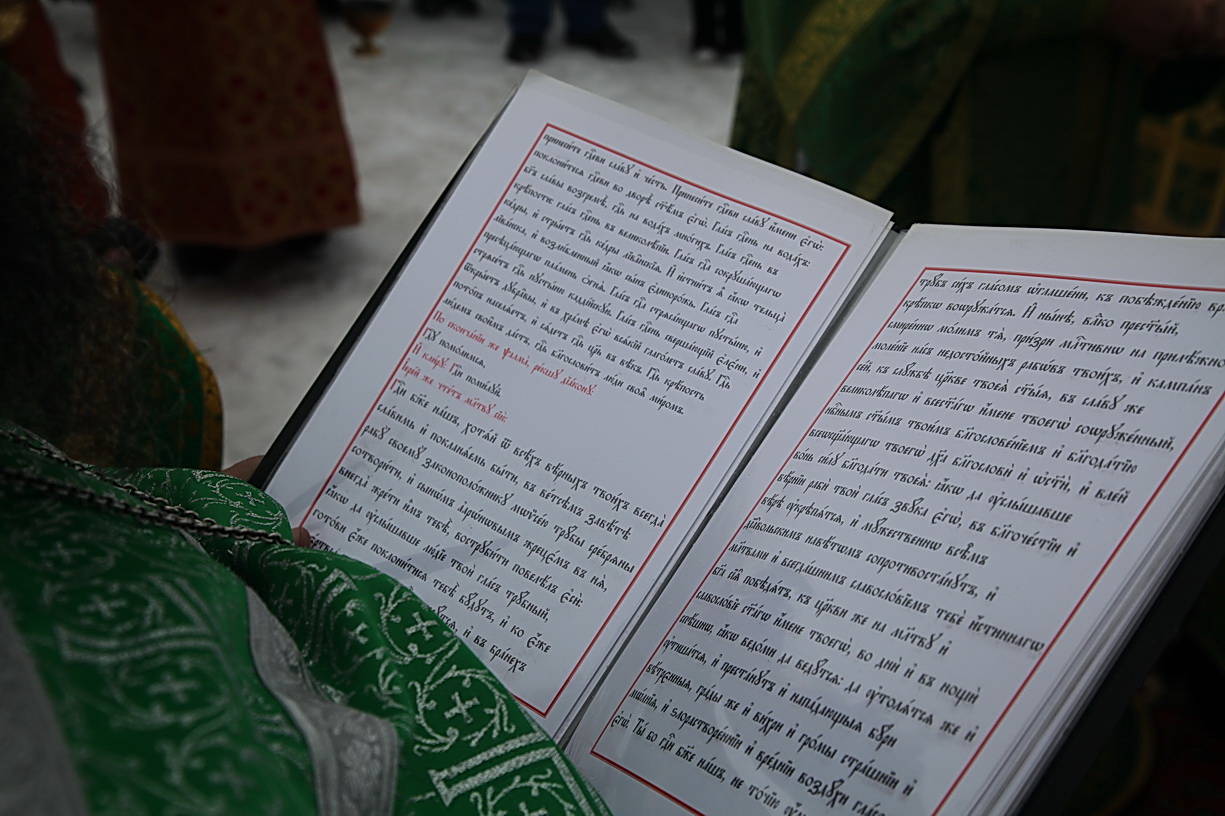 принеси́те гдⷭ҇еви сла́вꙋ и҆ че́сть. Принеси́те гдⷭ҇еви сла́вꙋ и҆́мени є҆гѡ̀:
поклони́тесѧ гдⷭ҇еви во дворѣ̀ ст҃ѣ́мъ є҆гѡ̀. Гла́съ гдⷭ҇ень на вода́хъ:
бг҃ъ сла́вы возгремѣ̀, гдⷭ҇ь на вода́хъ мно́гихъ. Гла́съ гдⷭ҇ень въ
крѣ́пости: гла́съ гдⷭ҇ень въ великолѣ́пїи. Гла́съ гдⷭ҇а сокрꙋша́ющагѡ
ке́дры, и҆ стры́етъ гдⷭ҇ь ке́дры лїва̑нскїѧ. И҆ и҆стни́тъ ѧ҆̀ ꙗ҆́кѡ тельца̀
лїва́нска, и҆ возлю́бленный ꙗ҆́кѡ сы́нъ є҆диноро́жь. Гла́съ гдⷭ҇а
пресѣца́ющагѡ пла́мень ѻ҆гнѧ̀. Гла́съ гдⷭ҇а стрѧса́ющагѡ пꙋсты́ню, и҆
стрѧсе́тъ гдⷭ҇ь пꙋсты́ню каддї́йскꙋю. Гла́съ гдⷭ҇ень сверша́ющїй є҆ле́ни, и҆
ѿкры́етъ дꙋбра̑вы, и҆ въ хра́мѣ є҆гѡ̀ всѧ́кїй глаго́летъ сла́вꙋ. Гдⷭ҇ь
пото́пъ населѧ́етъ, и҆ сѧ́детъ гдⷭ҇ь цр҃ь въ вѣ́къ. Гдⷭ҇ь крѣ́пость
лю́демъ свои̑мъ да́стъ, гдⷭ҇ь бл҃гослови́тъ лю́ди своѧ̑ ми́ромъ.
По сконча́нїи же ѱалма̀, ре́кшꙋ дїа́конꙋ:
Гдⷭ҇ꙋ помо́лимсѧ,
И҆ кли́рꙋ: Гдⷭ҇и поми́лꙋй.
І҆ере́й же чте́тъ мл҃твꙋ сїю̀:
Гдⷭ҇и бж҃е на́шъ, хотѧ́й ѿ всѣ́хъ вѣ́рныхъ твои́хъ всегда̀
сла́вимь и҆ покланѧ́емь бы́ти, въ ве́тсѣмъ завѣ́тѣ
рабꙋ̀ своемꙋ̀ законополо́жникꙋ мѡѷсе́ю трꙋбы̑ срє́брѧны
сотвори́ти, и҆ сынѡ́мъ а҆арѡ́нѡвымъ жерцє́мъ въ нѧ̀,
внегда̀ жре́ти и҆̀мъ тебѣ̀, вострꙋби́ти повелѣ́лъ є҆сѝ:
ꙗ҆́кѡ да ᲂу҆слы́шавше лю́дїе тво́й гла́съ трꙋ́бный,
гото́ви є҆́же поклони́тисѧ тебѣ̀ бꙋ́дꙋтъ, и҆ ко є҆́же
и҆ въ бра́нехъ
трꙋ́бъ си́хъ гла́сомъ ѡ҆глаше́ни, къ побѣжде́нїю
крѣ́пкѡ вооружа́тсѧ. И҆ ны́нѣ, влⷣко прест҃ы́й,
смире́ннѡ мо́лимъ тѧ̀, при́зри млⷭ҇тивнѡ на приле́жное
моле́нїе на́съ недосто́йныхъ рабѡ́въ твои́хъ, и҆ кампа́нъ
се́й, въ слꙋ́жбѣ цр҃кве твоеѧ̀ ст҃ы́ѧ, въ сла́вꙋ же
великолѣ́пагѡ и҆ всест҃а́гѡ и҆́мене твоегѡ̀ соѡрꙋже́нный,
нбⷭ҇нымъ ст҃ы́мъ твои́мъ бл҃гослове́нїемъ и҆ бл҃года́тїю
всеѡсщ҃а́ющагѡ твоегѡ̀ дх҃а бл҃гословѝ и҆ ѡ҆ст҃ѝ, и҆ влі́й
во́нь си́лꙋ бл҃года́ти твоеѧ̀: ꙗ҆́кѡ да ᲂу҆слы́шавше
вѣ́рнїи рабѝ твоѝ гла́съ зву́ка є҆гѡ̀, въ бл҃гоче́стїи и҆
вѣ́рѣ ᲂу҆крѣпѧ́тсѧ, и҆ мꙋ́жественнѡ всѣ̑мъ
дїа́вольскимъ навѣ́тѡмъ сопротивоста́нꙋтъ, и҆
мл҃твами и҆ всегда́шнимъ славосло́вїемъ тебѐ и҆́стиннагѡ
бг҃а сїѧ̑ побѣдѧ́тъ, къ цр҃кви же на мл҃твꙋ и҆
славосло́вїе ст҃а́гѡ и҆́мене твоегѡ̀, во днѝ и҆ въ нощѝ
спѣ́шнѡ, ꙗ҆́кѡ ведо́ми да ведꙋ́тсѧ: да ᲂу҆толѧ́тсѧ же и҆
ᲂу҆тиша́тсѧ, и҆ преста́нꙋтъ и҆ напа́дающыѧ бꙋ̑ри
вѣ́трєнныѧ, гра́ды же и҆ ви́хри и҆ гро́мы стра́шнїи и҆
мѡ́лнїѧ, и҆ злорастворе́ннїи и҆ вре́днїи во́здꙋхи гла́сомъ
є҆гѡ̀. Ты́ бо гдⷭ҇и бж҃е на́шъ, не то́чїю